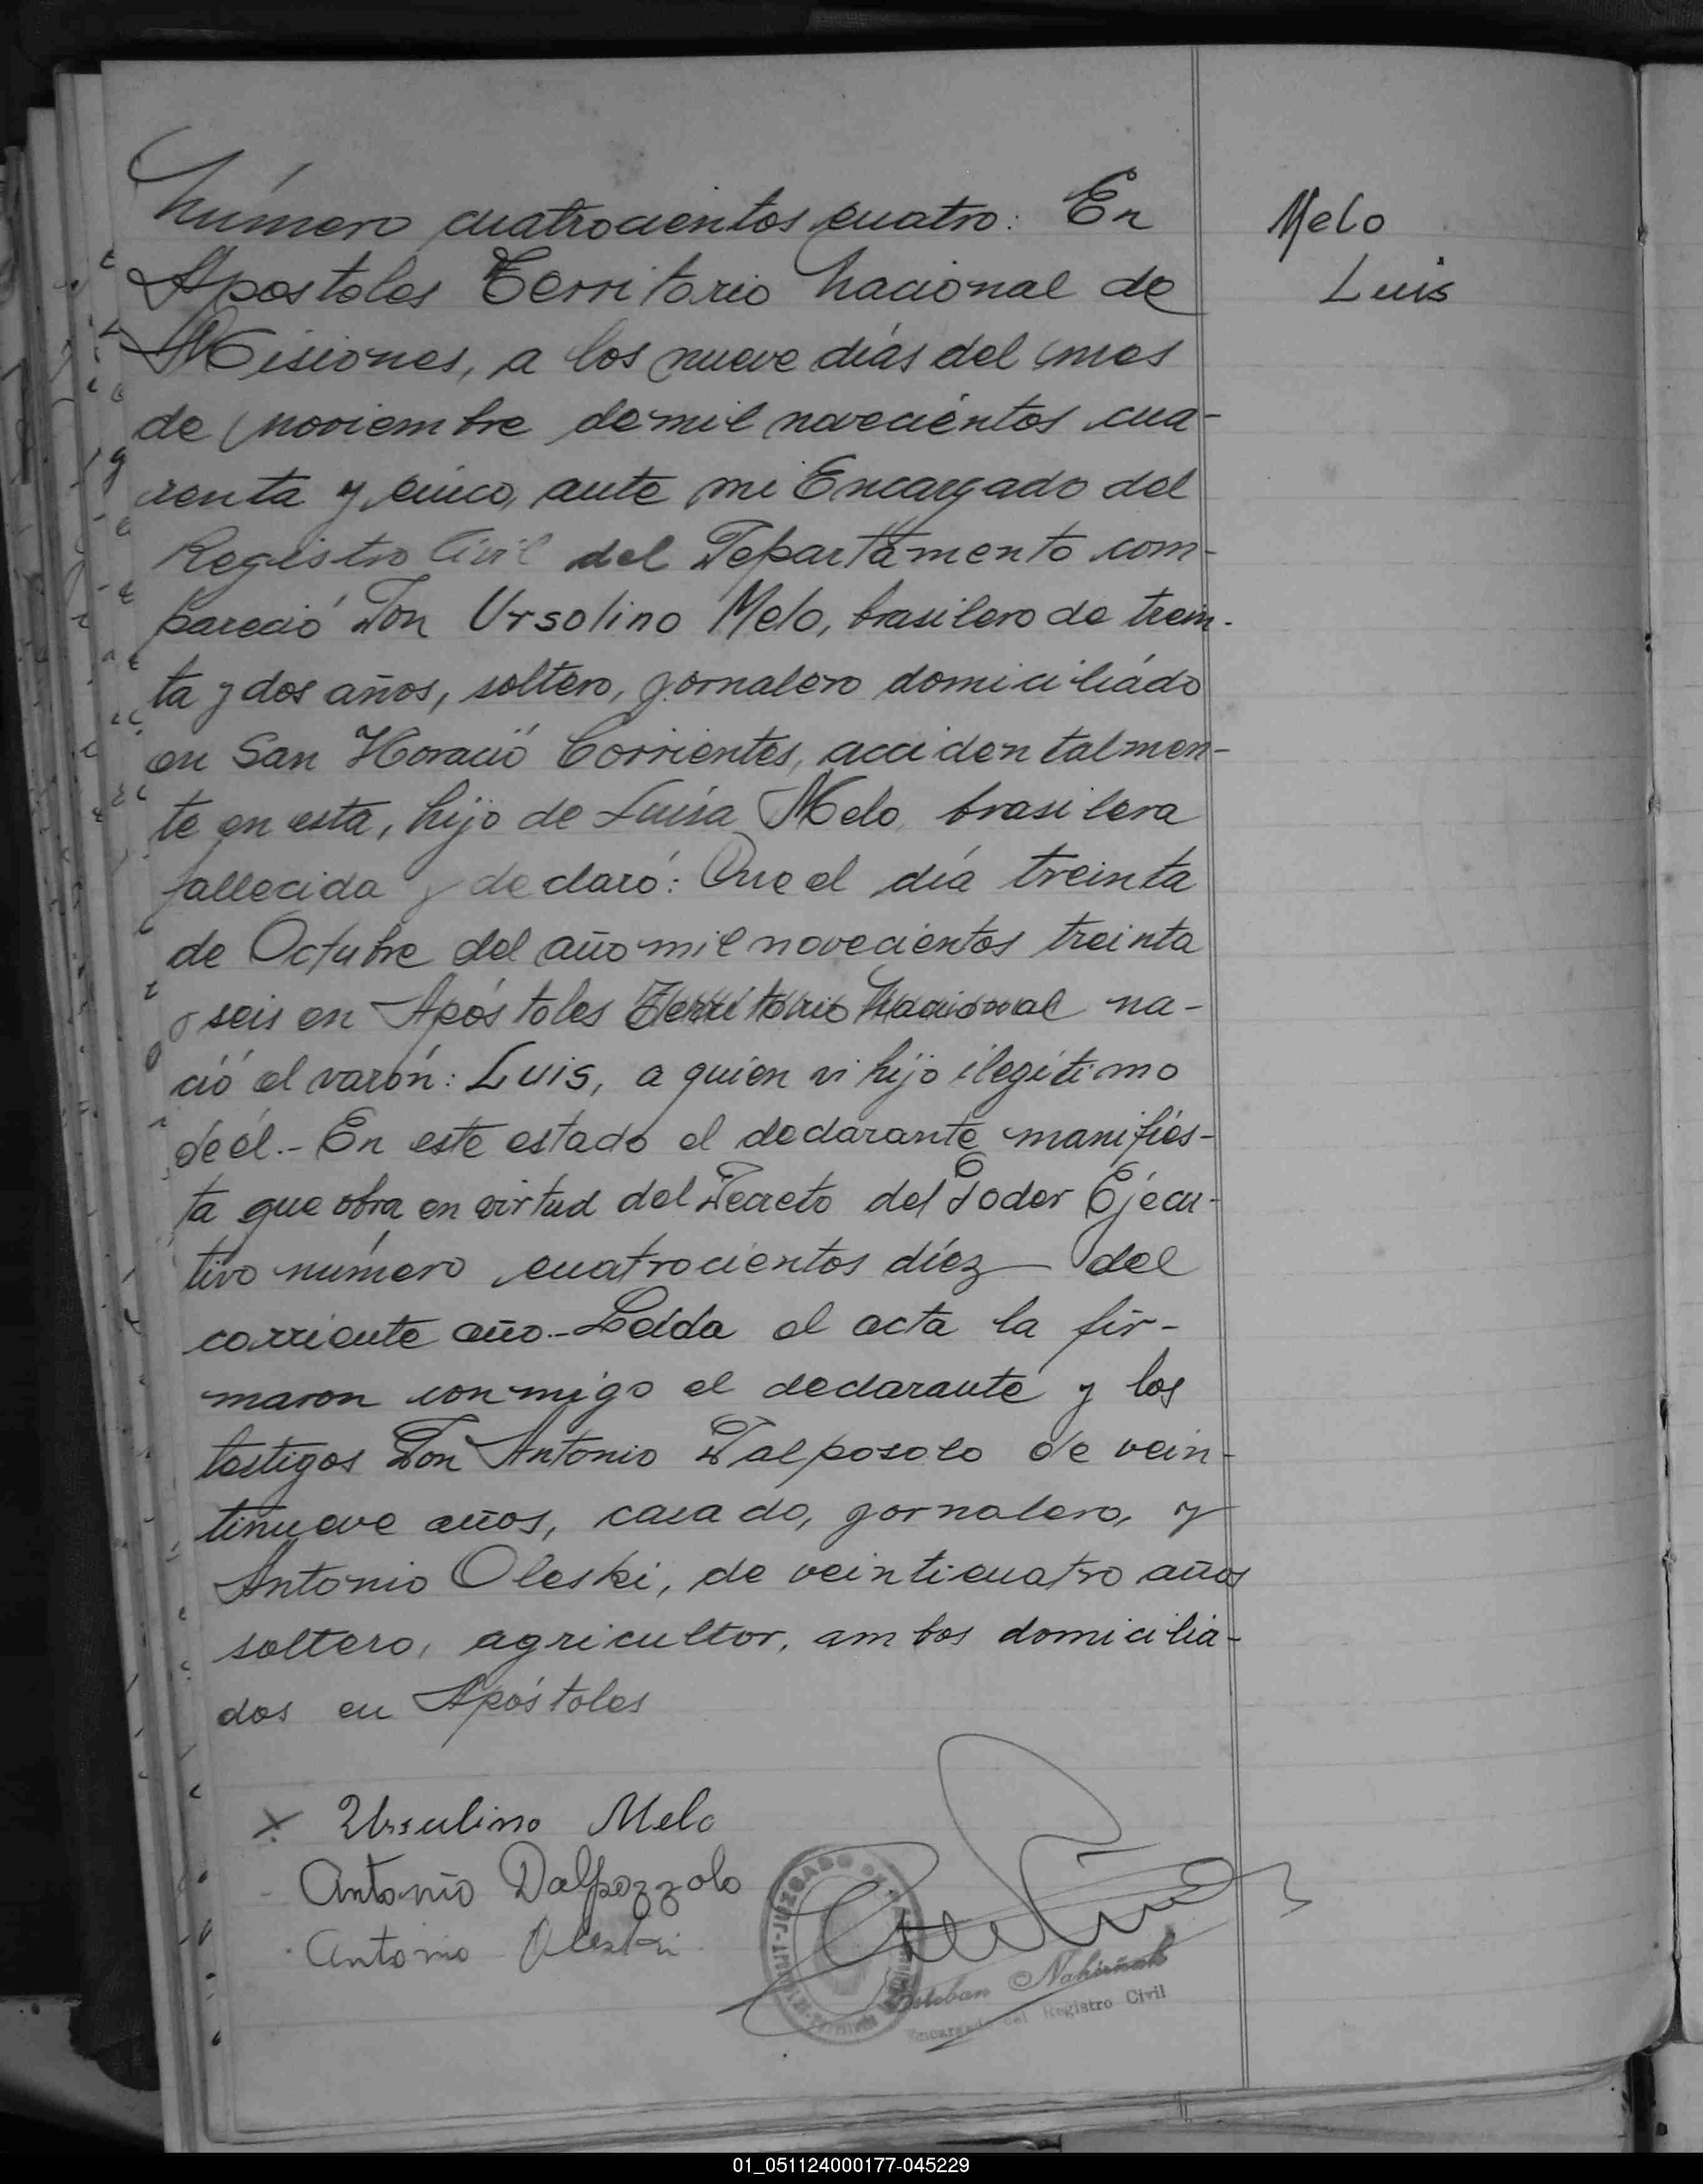 Número cuatrocientos cuatro: En
Melo
Luis
Apostoles Territorio Nacional de
Misiones, a los nueve días del mes
de noviembre de mil novecientos cua-
renta y cinco, ante mi Encargado del
Registro Civil del Departamento com-
pareció Don Ursolino Melo, brasilero de trein-
ta y dos años, soltero, jornalero domiciliado
en San Horacio Corrientes, accidentalmen-
te en esta, hijo de Luisa Melo, brasilera
fallecida y declaró: Que el día treinta
de Octubre del año mil novecientos treinta
y seis en Apóstoles Territorio Nacional na-
ció el varón: Luis, a quien vi hijo ilegitimo
de él.- En este estado el declarante manifies-
ta que obra en virtud del Decreto del Poder Ejecu-
tivo número cuatrocientos diez — del
corriente año.- Leída el acta la fir-
maron conmigo el declarante y los
testigos Don Antonio Dalposolo de vein-
tinueve años, casado, jornalero, y
Antonio Oleski, de veinticuatro años
soltero, agricultor, ambos domicilia-
dos en Apóstoles
Ursulino Melo
Antonio Dalpozzolo
Antonio Oleski
JUZGADO DE PAZ
Esteban Nahirñak
Encargado del Registro Civil
01_051124000177-045229